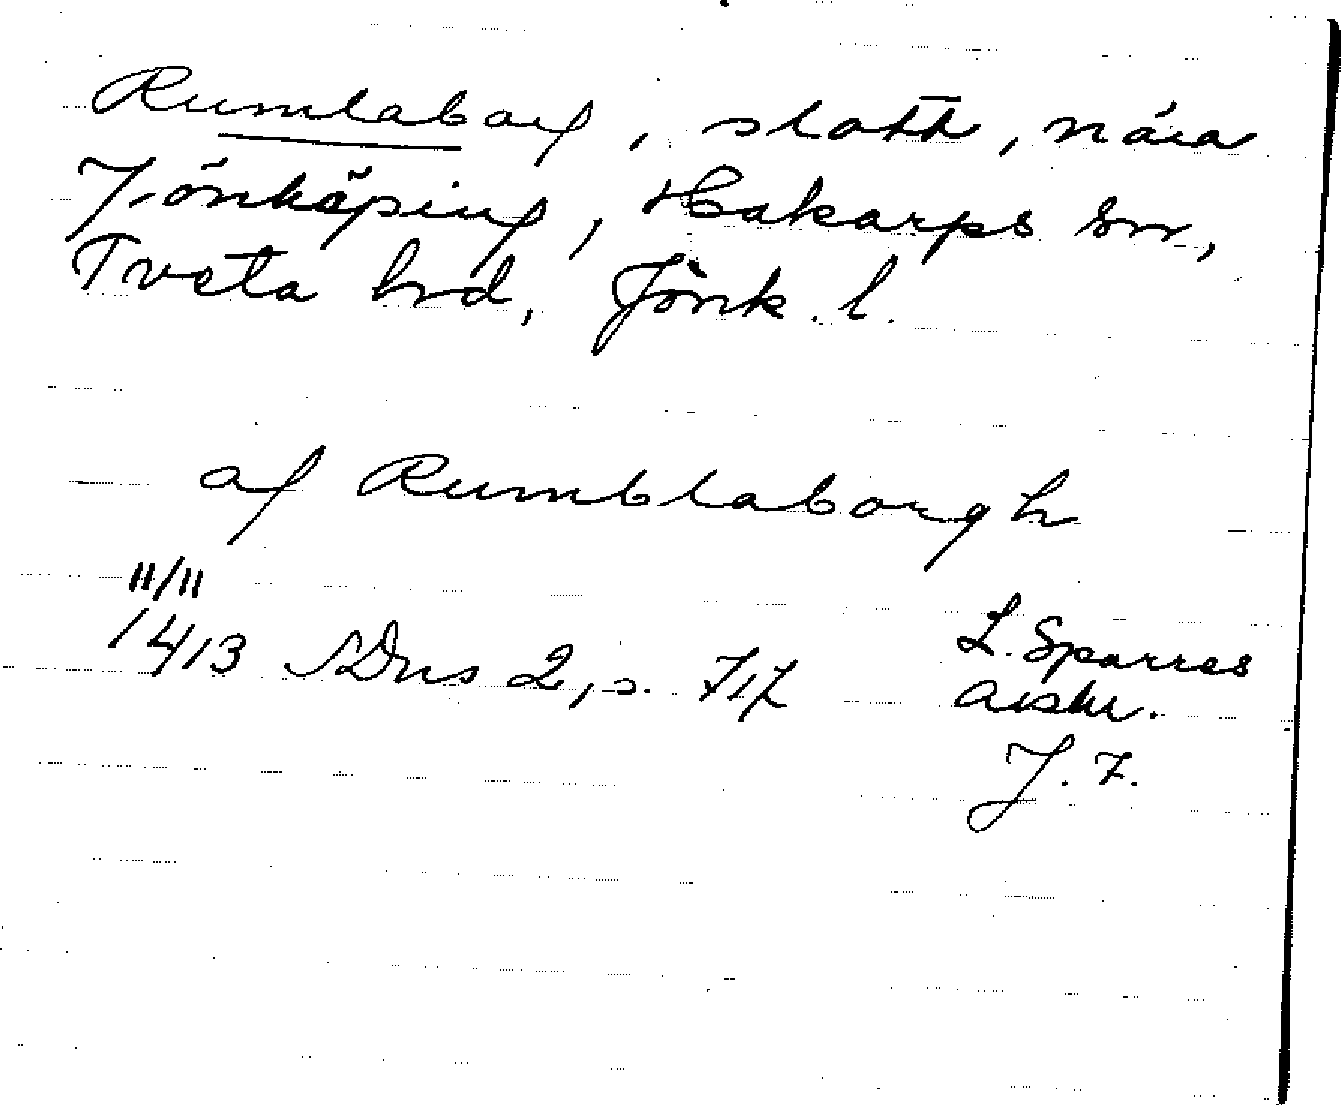 Rumlaborg, slott, nära
Jönköping, Hakarps sn,
Tveta hrd, Jönk. l.
af Rumblaborgh
11/11
1413 SDns 2, s. 717
L. Sparres
avskr.
J. F.